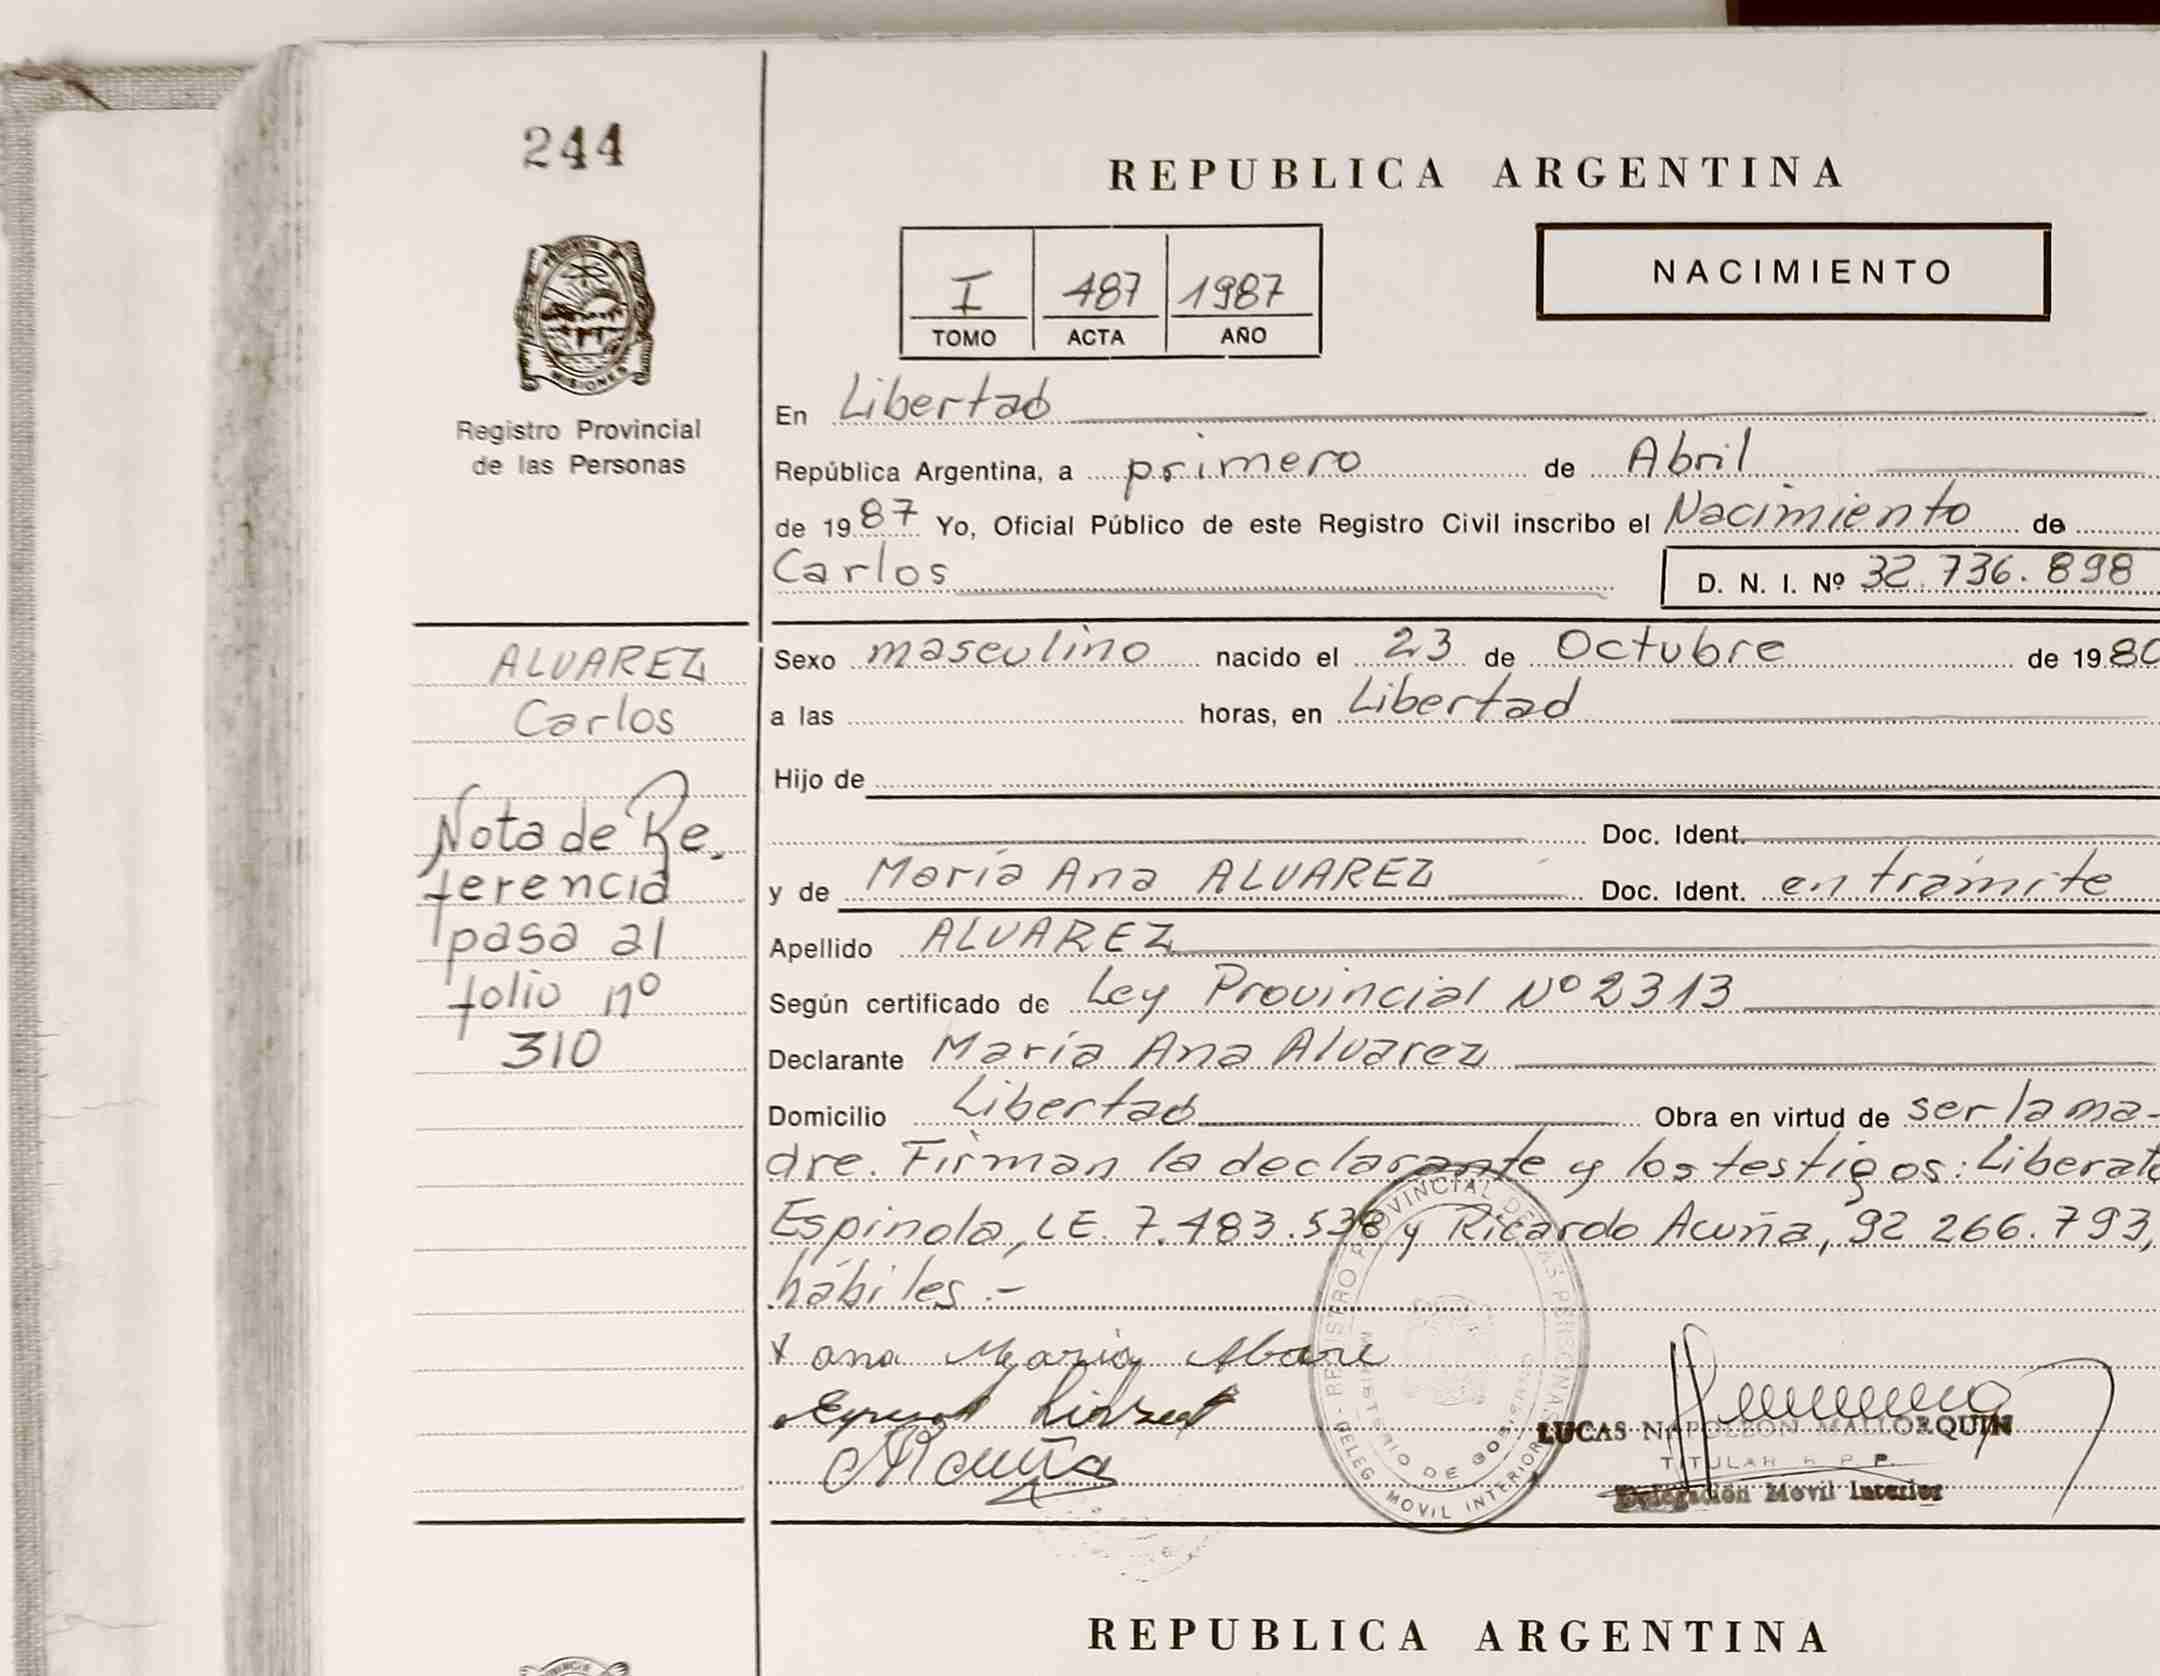 244
REPUBLICA ARGENTINA
NACIMIENTO
I 487 1987
TOMO ACTA AÑO
MISIONES
Registro Provincial
de las Personas
En Libertad
República Argentina, a primero de Abril
de 1987 Yo, Oficial Público de este Registro Civil inscribo el Nacimiento de
Carlos D. N. I. Nº 32.736.898
ALVAREZ
Carlos
Nota de Re-
ferencia
pasa al
folio nº
310
Sexo masculino nacido el 23 de Octubre de 1980
a las horas, en Libertad
Hijo de
Doc. Ident.
y de María Ana ALVAREZ Doc. Ident. en trámite
Apellido ALVAREZ
Según certificado de Ley Provincial Nº 2313
Declarante María Ana Alvarez
Domicilio Libertad Obra en virtud de ser la ma-
dre. Firman la declarante y los testigos: Liberato
Espinola, LE. 7.483.538 y Ricardo Acuña, 92 266.793,
hábiles.-
x ana Maria
Acuña
REGISTRO PROVINCIAL DE LAS PERSONAS
MINISTERIO DE GOBIERNO
DELEG. MOVIL INTERIOR
LUCAS NAPOLEON MALLORQUIN
TITULAR R. P. P.
Delegación Movil Interior
REPUBLICA ARGENTINA